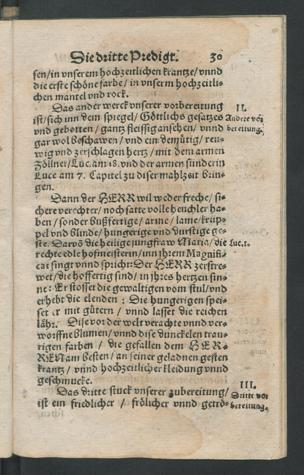 Die dritte Predigt. 30
sen/in vnserem hochzeitlichen krantze/vnnd
die erste schöne farbe/in vnserm hochzeitli-
chen mantel vnd rock.
Das ander werck vnserer vorbereitung
ist/sich inn dem spiegel/Göttlichs gesatzes
vnd gebotten/gantz fleissig ansehen/vnnd
gar wol beschawen/vnd ein demütig/reu-
wig vnd zerschlagen hertz/mit dem armen
Zöllner/Luc.am 18.vnd der armen sünderin
Luce am 7. Capitel zu diser mahlzeit brin-
gen.
II.
Andere vor
bereitung.
Dann der HERR wil weder freche/si-
chere verechter/noch satte volle heuchler ha-
ben/sonder bußfertige/arme/lame/krüp-
pel vnd blinde/hungerige vnd durstige ge-
ste. Darvō die heilige jungfraw Maria/die
rechte edle hofmeisterin/inn jhrem Magnifi-
cat singt vnnd spricht: Der HERR zerstre-
wet/die hoffertig sind/in jhres hertzen sin-
ne: Er stosset die gewaltigen vom stul/vnd
erhebt die elenden: Die hungerigen spei-
set er mit gütern/vnnd lasset die reichen
lähr. Dise vor der welt verachte vnnd ver-
worffne blumen/vnnd dise dunckelen trau-
rigen farben/die gefallen dem HER-
REN am besten/an seiner geladnen gesten
krantz/vnnd hochzeitlicher kleidung vnnd
geschmucke.
Luc.1.
Das dritte stuck vnserer zubereitung/
ist ein friedlicher/frölicher vnnd getrö-
III.
Dritte vor
bereitung.